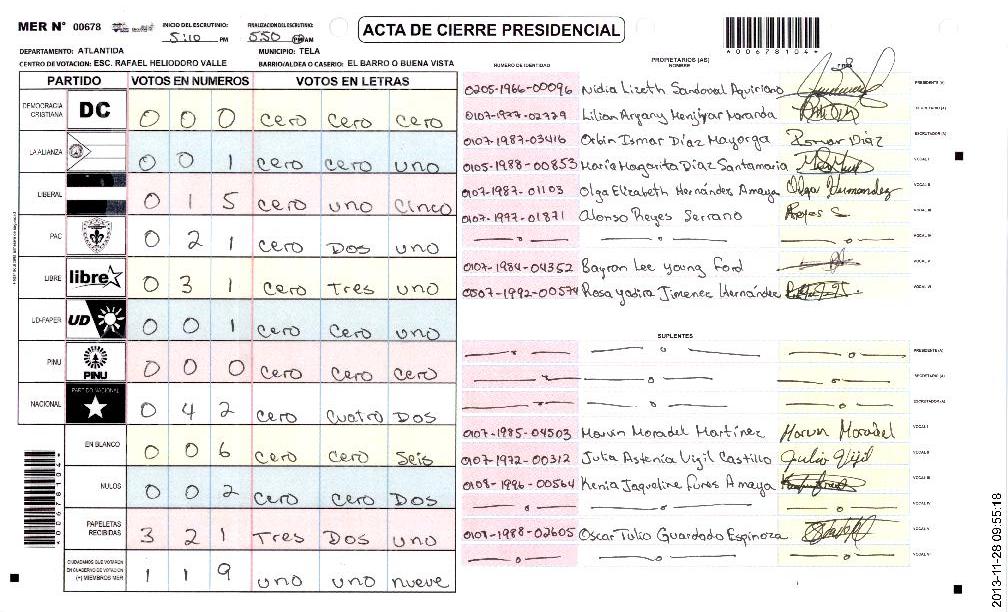 MER N° 00678
INICIO DEL ESCRUTINIO: 5:10 PM
FINALIZACION DEL ESCRUTINIO: 5:50 PM
ACTA DE CIERRE PRESIDENCIAL
*00678104*
DEPARTAMENTO: ATLANTIDA
MUNICIPIO: TELA
CENTRO DE VOTACION: ESC. RAFAEL HELIODORO VALLE
BARRIO/ALDEA O CASERIO: EL BARRO O BUENA VISTA
PARTIDO VOTOS EN NUMEROS VOTOS EN LETRAS
DEMOCRACIA CRISTIANA DC 0 0 0 cero cero cero
LA ALIANZA 0 0 1 cero cero uno
LIBERAL 0 1 5 cero uno cinco
PAC 0 2 1 cero Dos uno
LIBRE libre 0 3 1 cero Tres uno
UD-FAPER UD 0 0 1 cero cero uno
PINU PINU 0 0 0 cero cero cero
NACIONAL PARTIDO NACIONAL 0 4 2 cero cuatro Dos
EN BLANCO 0 0 6 cero cero Seis
NULOS 0 0 2 cero cero Dos
PAPELETAS RECIBIDAS 3 2 1 Tres Dos uno
CIUDADANOS QUE VOTARON EN CUADERNO DE VOTACION (+) MIEMBROS MER 1 1 9 uno uno nueve
*00678104*
PROPIETARIOS (AS)
NUMERO DE IDENTIDAD NOMBRE
0205-1966-00096 Nidia Lizeth Sandoval Aquiriano PRESIDENTE (A)
0107-1977-02779 Lilian Argany Menjivar Maranda
0107-1987-03416 Orbin Ismar Díaz Mayorga Ismar Díaz ESCRUTADOR (A)
0105-1988-00853 María Magarita Díaz Santamaria VOCAL I
0107-1987-01103 Olga Elizabeth Hernández Amaya Olga Hernandez VOCAL II
0107-1977-01871 Alonso Reyes Serrano Reyes S. VOCAL III
VOCAL IV
0107-1984-04352 Bayron Lee young Ford VOCAL V
0507-1992-00574 Rosa Yadira Jimenez Hernández VOCAL VI
SUPLENTES
PRESIDENTE (A)
SECRETARIO (A)
ESCRUTADOR (A)
0107-1985-04503 Marvin Moradel Martínez Marvin Moradel VOCAL I
0107-1972-00312 Julia Astenia Vigil Castillo Julia Vijil VOCAL II
0108-1996-00564 Kenia Jaqueline Funes Amaya VOCAL III
VOCAL IV
0107-1988-02605 Oscar Tulio Guardado Espinoza VOCAL V
VOCAL VI
2013-11-28 09:55:18